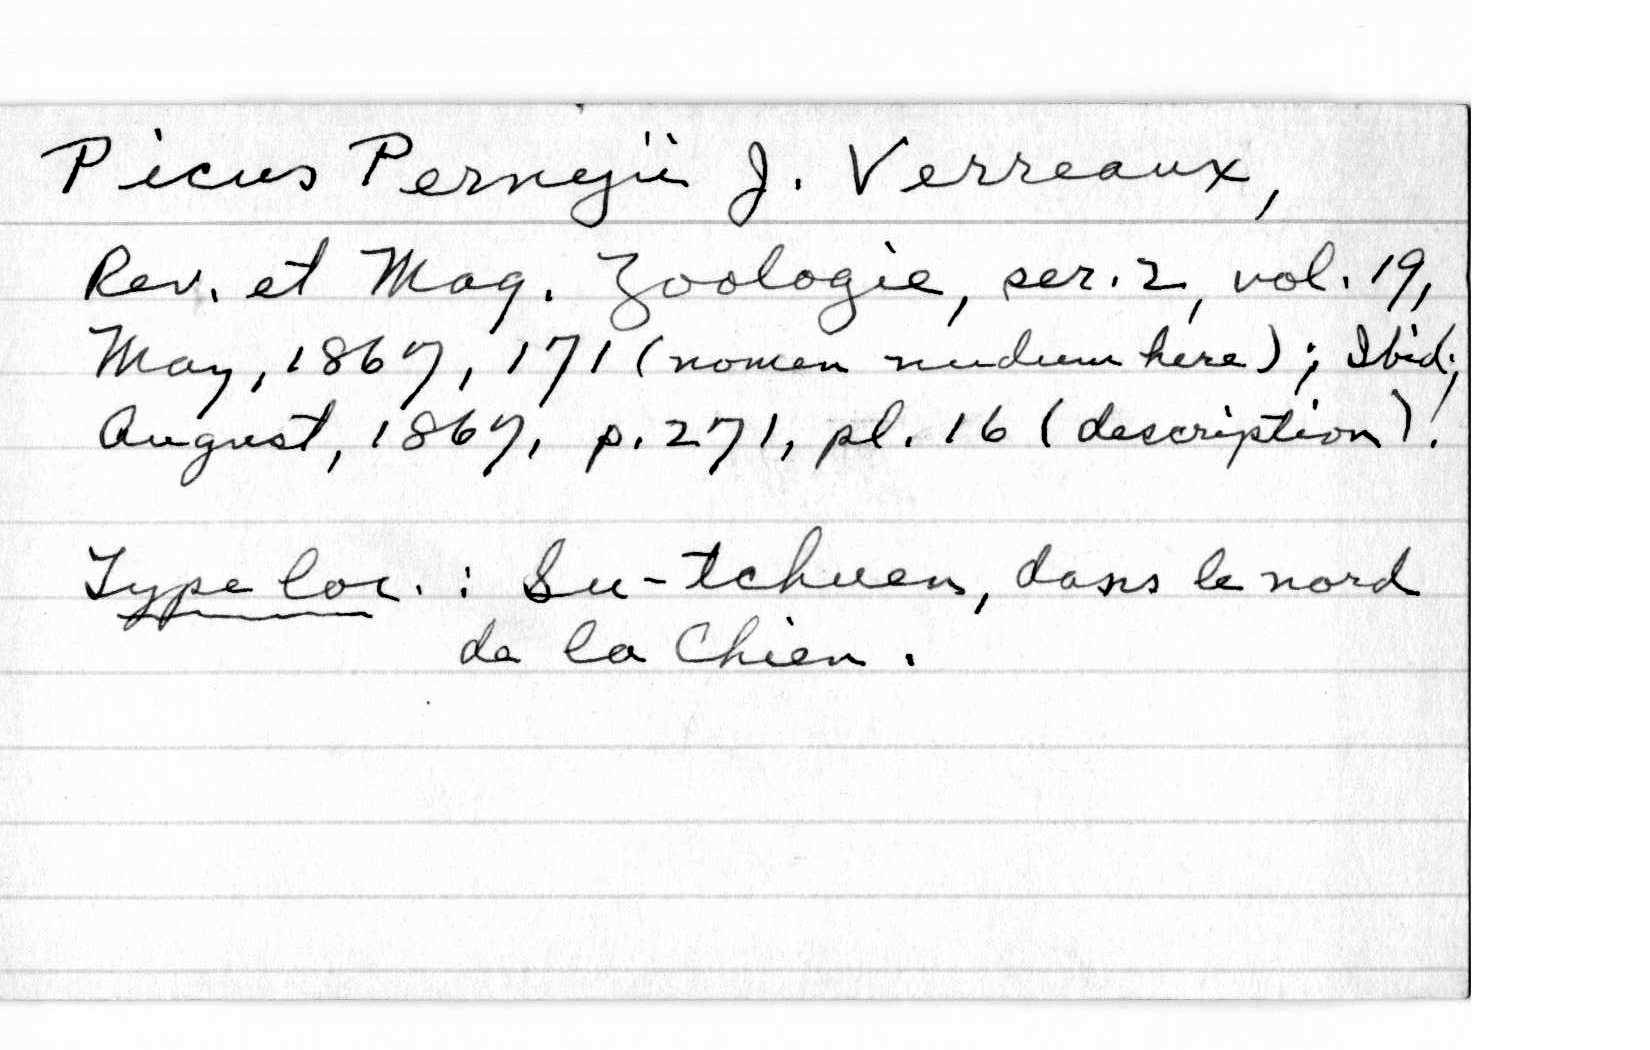 Picus Pernyii J. Verreaux,
Rev. et Mag. Zoologie, ser. 2, vol. 19,
May, 1867, 171 (nomen nudum here); Ibid;
August, 1867, p. 271, pl. 16 (description).
Type loc. : Su-tchuen, dans le nord
de la Chien.